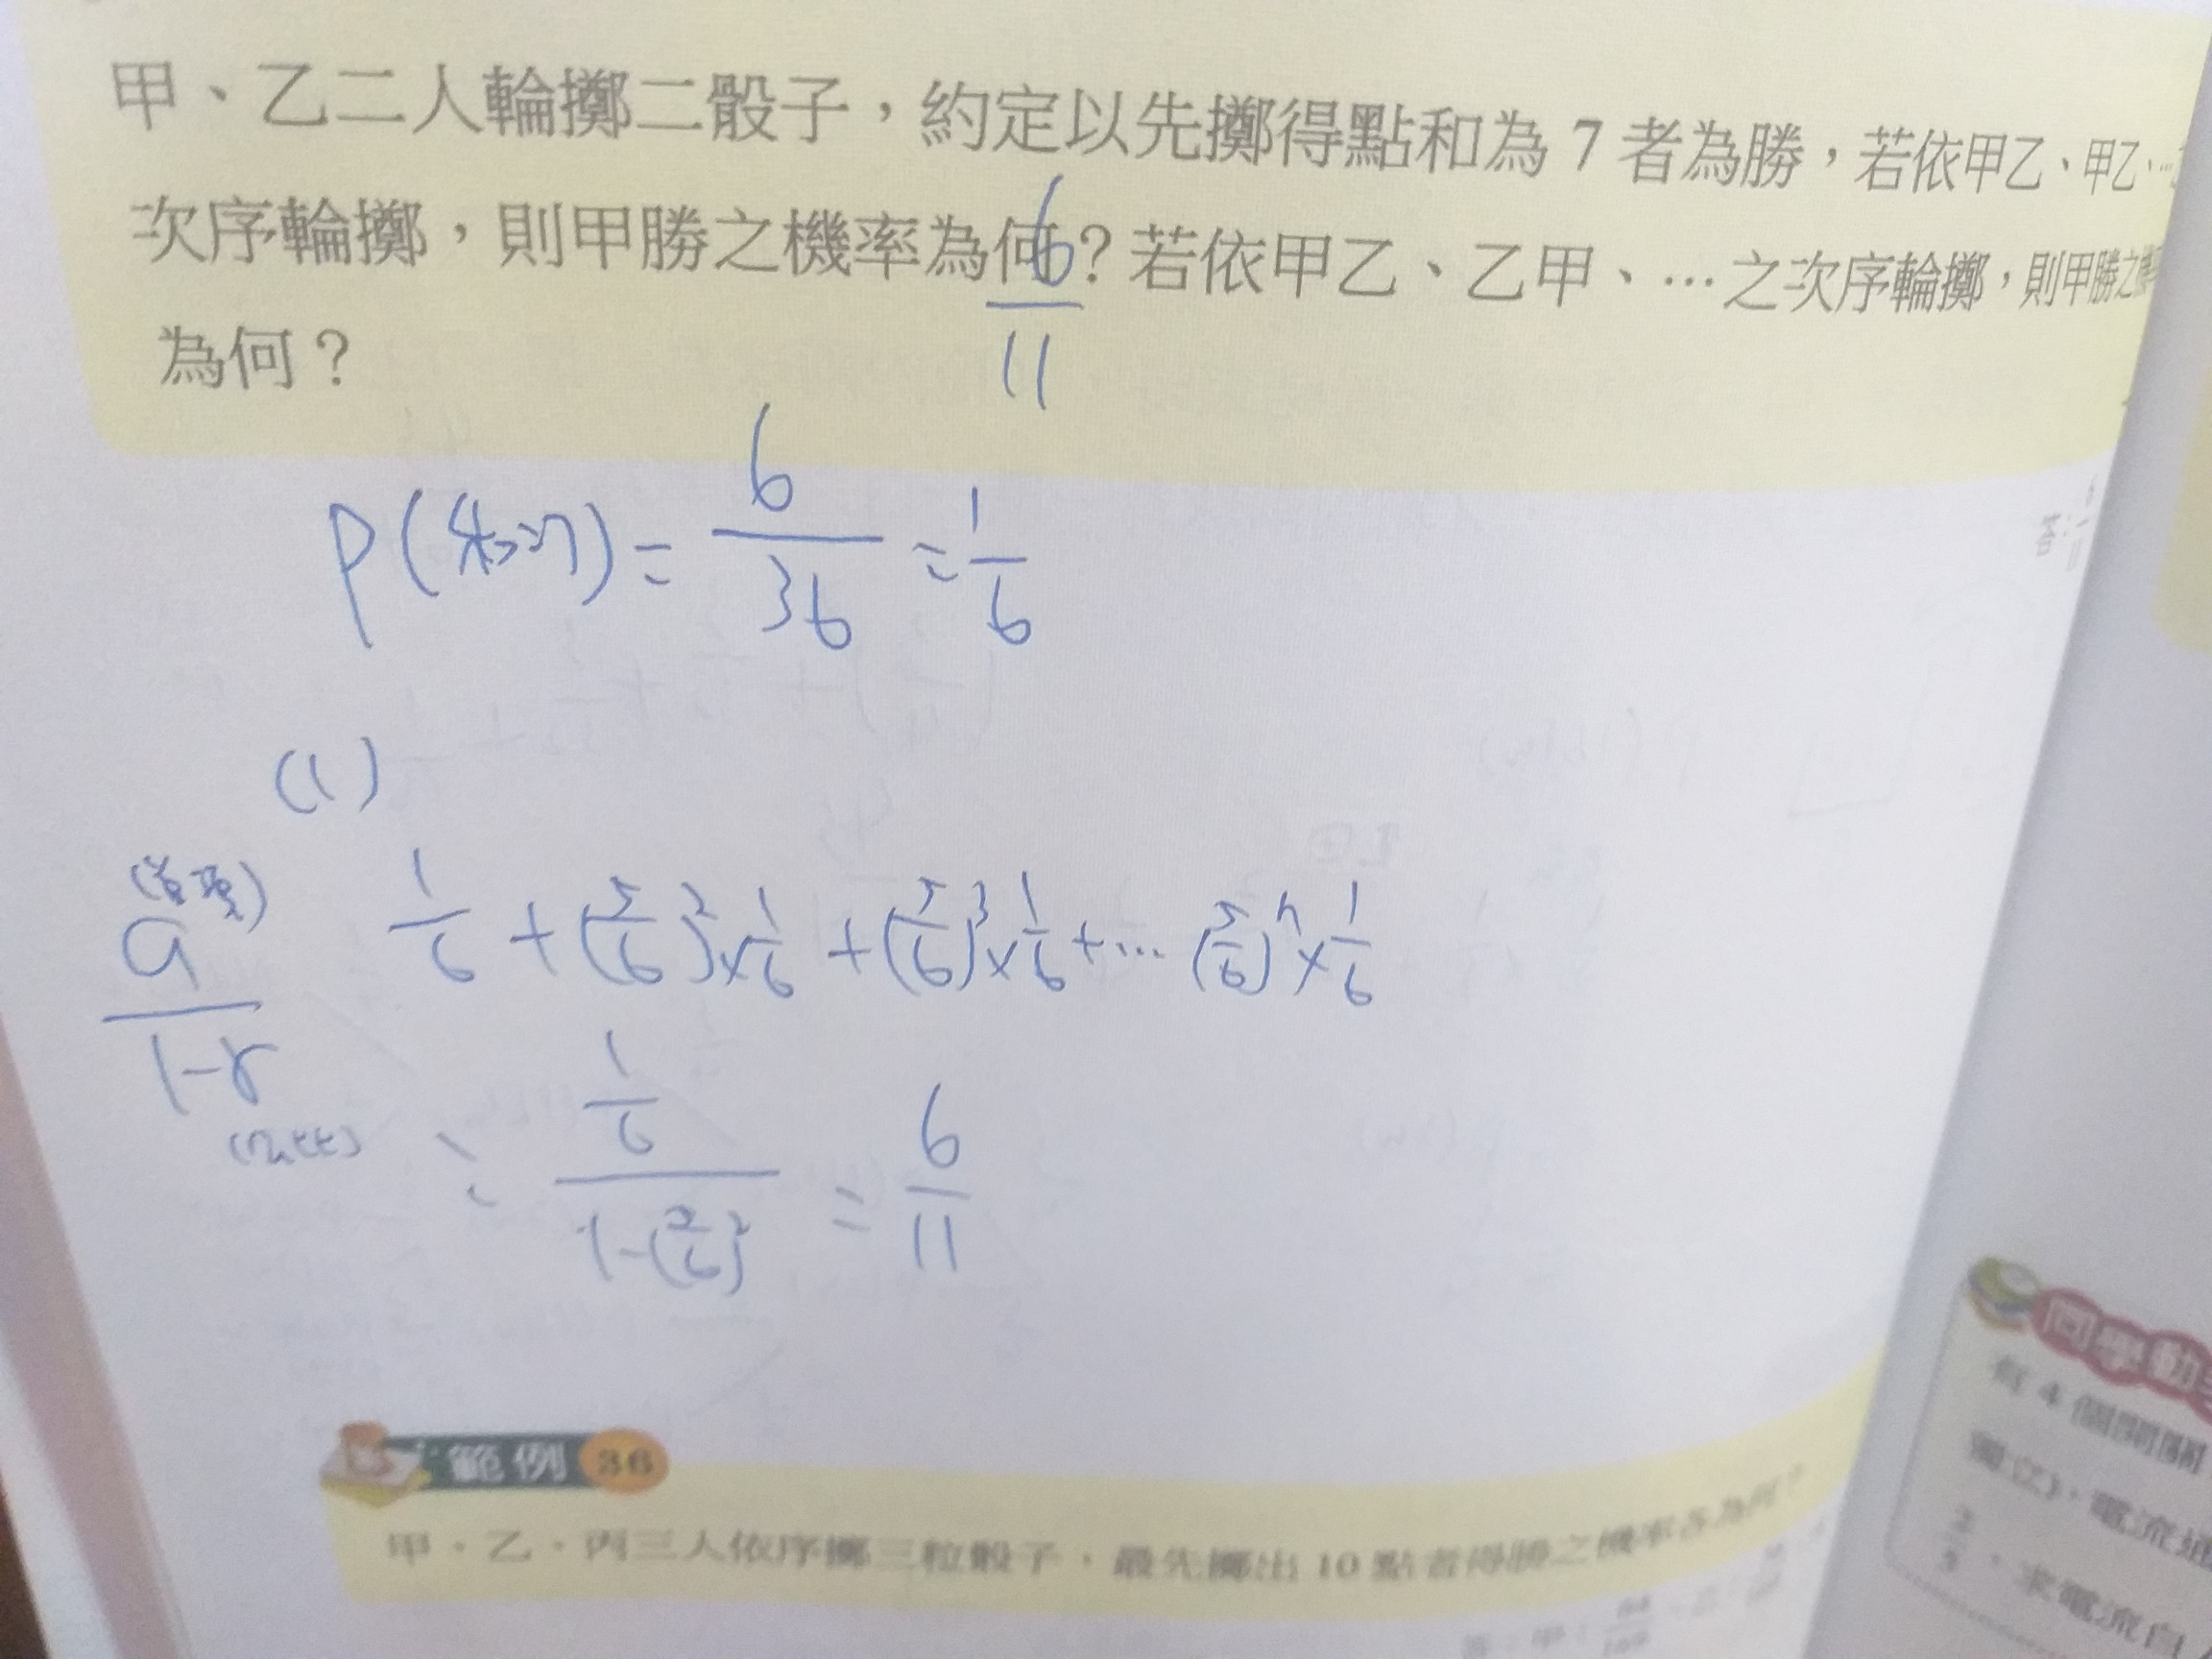 甲、乙二人輪擲二骰子，約定以先擲得點和為 7 者為勝，若依甲乙、甲乙、…
次序輪擲，則甲勝之機率為何？若依甲乙、乙甲、…之次序輪擲，則甲勝之
為何？
6/11
P(和為7) = 6/36 = 1/6
(1)
1/6 + (5/6)^2 × 1/6 + (5/6)^3 × 1/6 + … (5/6)^n × 1/6
(首項)
a/(1-r)
(公比)
= (1/6)/(1-(5/6)^2) = 6/11
範例 36
甲、乙、丙三人依序擲三粒骰子，最先擲出 10 點者得勝之機率各為何？
同學動
有 4 個開關
獨立)，電流通
，求電流自